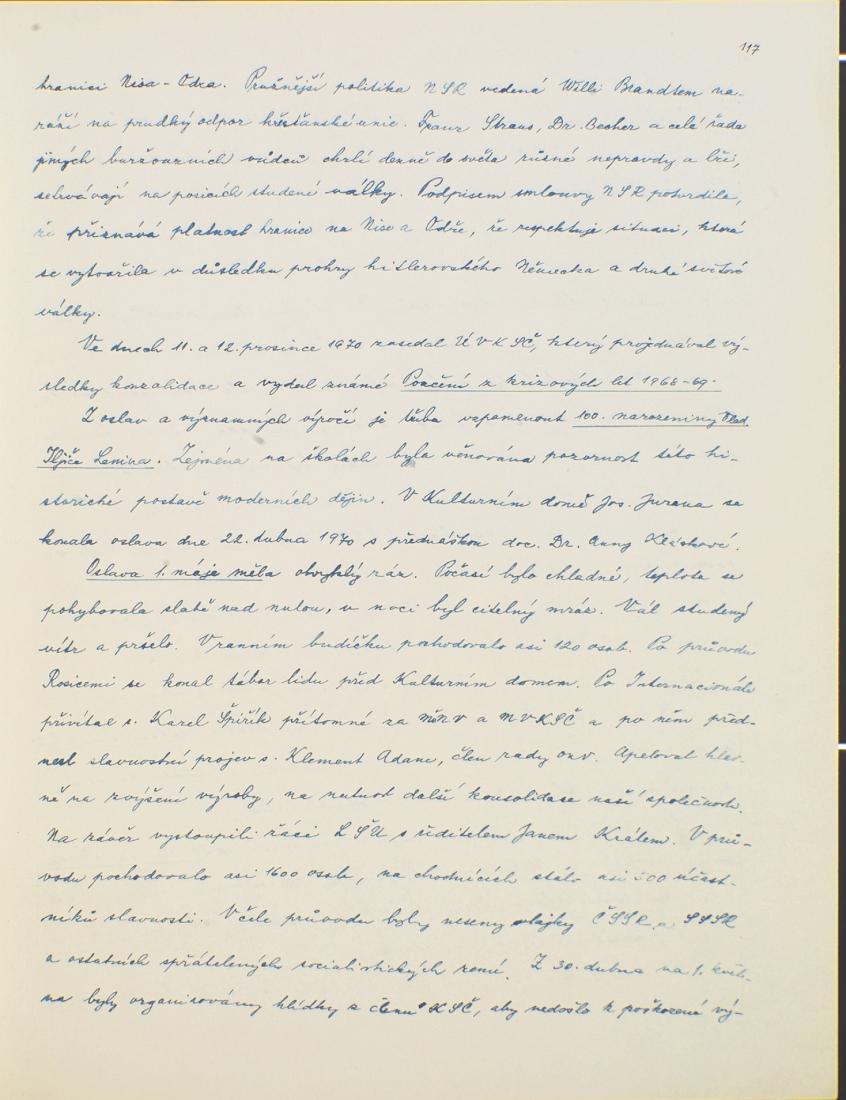 117
hranici Nisa - Odra. Pružnější politika NSR vedená Willi Brandtem na-
ráží na prudký odpor křesťanské unie. Franz Straus, Dr. Becher a celá řada
jiných buržoazních vůdců chrlí denně do světa různé nepravdy a lži,
setrvávají na posicích studené války. Podpisem smlouvy NSR potvrdila,
že přiznává platnost hranice na Nise a Odře, že respektuje situaci, která
se vytvořila v důsledku prohry hitlerovského Německa a druhé světové
války.
Ve dnech 11. a 12. prosince 1970 zasedal ÚV KSČ, který projednával vý-
sledky konzolidace a vydal známé Poučení z krizových let 1968-69.
Z oslav a významných výročí je třeba vzpomenout 100. narozeniny Vlad.
Iljiče Lenina. Zejména na školách byla věnována pozornost této hi-
storické postavě moderních dějin. V Kulturním domě Jos. Jurana se
konala oslava dne 22. dubna 1970 s přednáškou doc. Dr. Anny
Oslava 1. máje měla obvyklý ráz. Počasí bylo chladné, teplota se
pohybovala slabě nad nulou, v noci byl citelný mráz. Vál studený
vítr a pršelo. V ranním budíčku pochodovalo asi 120 osob. Po průvodu
Rosicemi se konal tábor lidu před Kulturním domem. Po Internacionále
přivítal s. Karel Špiřík přítomné za MěNV a MVKSČ a po něm před-
nesl slavnostní projev s. Klement Adam, člen rady ONV. Apeloval hlav-
ně na zvýšení výroby, na nutnost další konsolidace naší společnosti.
Na závěr vystoupili žáci LŠU s ředitelem Janem Králem. V prů-
vodu pochodovalo asi 1600 osob, na chodnících stálo asi 500 účast-
níků slavnosti. V čele průvodu byly neseny vlajky ČSSR a SSSR
a ostatních spřátelených socialistických zemí. Z 30. dubna na 1. květ-
na byly organisovány hlídky z členů KSČ, aby nedošlo k poškození vý-